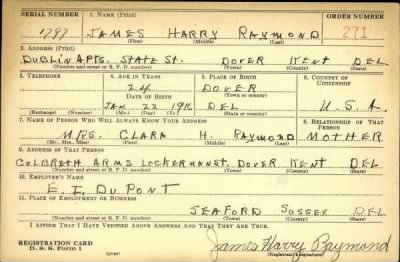 SERIAL NUMBER 1. NAME (Print) ORDER NUMBER
1797 JAMES HARRY RAYMOND 271
(First) (Middle) (Last)
2. ADDRESS (Print)
DUBLIN APTS. STATE ST. DOVER KENT DEL
(Number and street or R. F. D. number) (Town) (County) (State)
3. TELEPHONE 4. AGE IN YEARS 5. PLACE OF BIRTH 6. COUNTRY OF CITIZENSHIP
24 DOVER
DATE OF BIRTH (Town or county)
JAN 22 1916 DEL U.S.A.
(Exchange) (Number) (Mo.) (Day) (Yr.) (State or country)
7. NAME OF PERSON WHO WILL ALWAYS KNOW YOUR ADDRESS 8. RELATIONSHIP OF THAT PERSON
MRS. CLARA H. RAYMOND MOTHER
(Mr., Mrs., Miss) (First) (Middle) (Last)
9. ADDRESS OF THAT PERSON
CULBRETH ARMS LOCKERMAN ST. DOVER KENT DEL
(Number and street or R. F. D. number) (Town) (County) (State)
10. EMPLOYER'S NAME
E. I. DUPONT
11. PLACE OF EMPLOYMENT OR BUSINESS
SEAFORD SUSSEX DEL
(Number and street or R. F. D. number) (Town) (County) (State)
I AFFIRM THAT I HAVE VERIFIED ABOVE ANSWERS AND THAT THEY ARE TRUE.
REGISTRATION CARD James Harry Raymond
D. S. S. FORM 1 (over) (Registrant's signature)